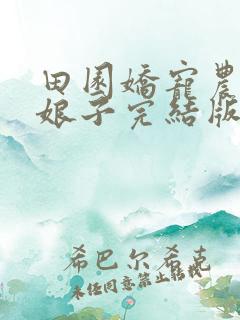 田園嬌寵農
娘子完結版
希巴尔希克
未经同意禁止转载